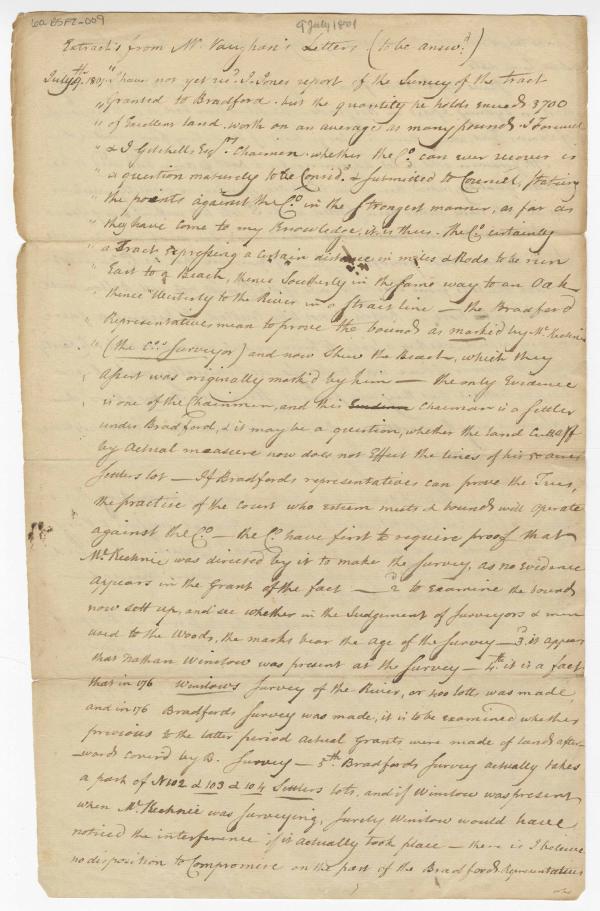 60 BSF2-009
9 July 1801
Extracts from Mr. Vaughan's Letters (to be answd.)
July 9th. 1801. "I have not yet recd. J. Jones report of the Survey of the tract
"Granted to Bradford. but the quantity he holds exceeds 3700
"of Excellent land. worth on an average as many pounds. I
" & J Gilchells Esqrs. Chairmen. whether the Co. can ever recover is
"a question maturely to be Considd. & submitted to Council, stating
" the points against the Co. in the strongest manner, as far as
" they have come to my Knowledge, it is thus. the Co. certainly
" a Tract expressing a certain distance in miles & Rods to be run
East to a Beach, thence Southerly in the same way to an Oak
thence Westerly to the River in a strait line — the Bradford
" Representatives mean to prove the bounds as marked by Mc. Kechnie
" (the Cos. Surveyor) and now Shew the Beach, which they
assert was originally mark'd by him — the only Evidence
is one of the Chainmen, and this Chainman is a Settler
under Bradford, & it may be a question, whether the land Cutt off
by Actual measure now does not Effect the lines of his
Settlers lot — If Bradfords representatives can prove the Trees,
the practise of the Court who esteem meets & bounds will operate
against the Co. — the Co. have first to require proof that
Mc. Kechnie was directed by it to make the Survey, as no Evidence
appears in the Grant of the fact — 2d to Examine the bounds
now sett up, and see whether in the Judgement of Surveyors & men
used to the Woods, the marks bear the age of the Survey — 3d. it appears
that Nathan Winslow was present at the Survey — 4th. it is a fact
that in 176 Winslows Survey of the River, or 400 lotts was made,
and in 176 Bradfords Survey was made, it is to be examined whether
previous to the latter period actual Grants were made of lands after-
-wards coverd by B. Survey — 5th. Bradfords Survey actually takes
a part of N102 & 103 & 104 Settlers lots, and if Winslow was present
when Mc. Kechnie was Surveying, surely Winslow would have
noticed the interference if it actually took place — there is I believe
no disposition to Compromise on the part of the Bradfords Representatives